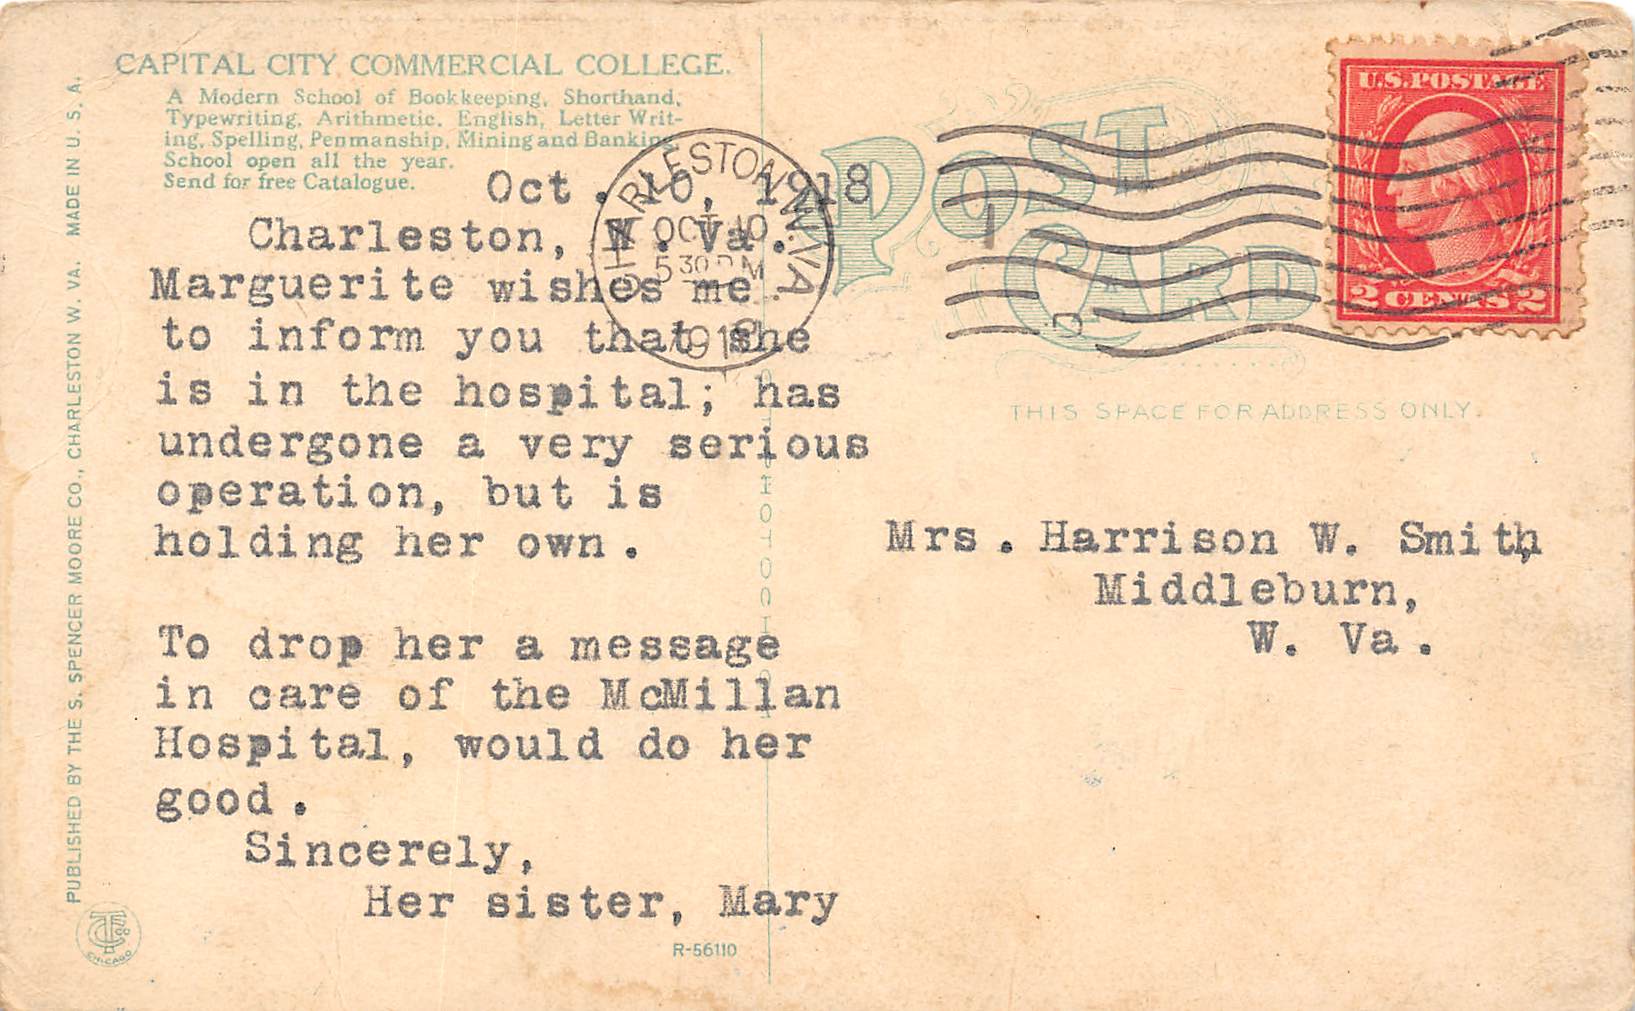 CAPITAL CITY COMMERCIAL COLLEGE.
A Modern School of Bookkeeping, Shorthand,
Typewriting, Arithmetic, English, Letter Writ-
ing, Spelling, Penmanship, Mining and Banking
School open all the year.
Send for free Catalogue.
Oct. 10, 1918
Charleston, W. Va.
Marguerite wishes me
to inform you that she
is in the hospital; has
undergone a very serious
operation, but is
holding her own.
To drop her a message
in care of the McMillan
Hospital, would do her
good.
Sincerely,
Her sister, Mary
R-56110
PUBLISHED BY THE S. SPENCER MOORE CO., CHARLESTON W. VA. MADE IN U. S. A.
CHICAGO
CHARLESTON W.VA
OCT 10
5 30 PM
1918
POST
CARD
U.S. POSTAGE
2 CENTS 2
THIS SPACE FOR ADDRESS ONLY.
Mrs. Harrison W. Smith,
Middleburn,
W. Va.